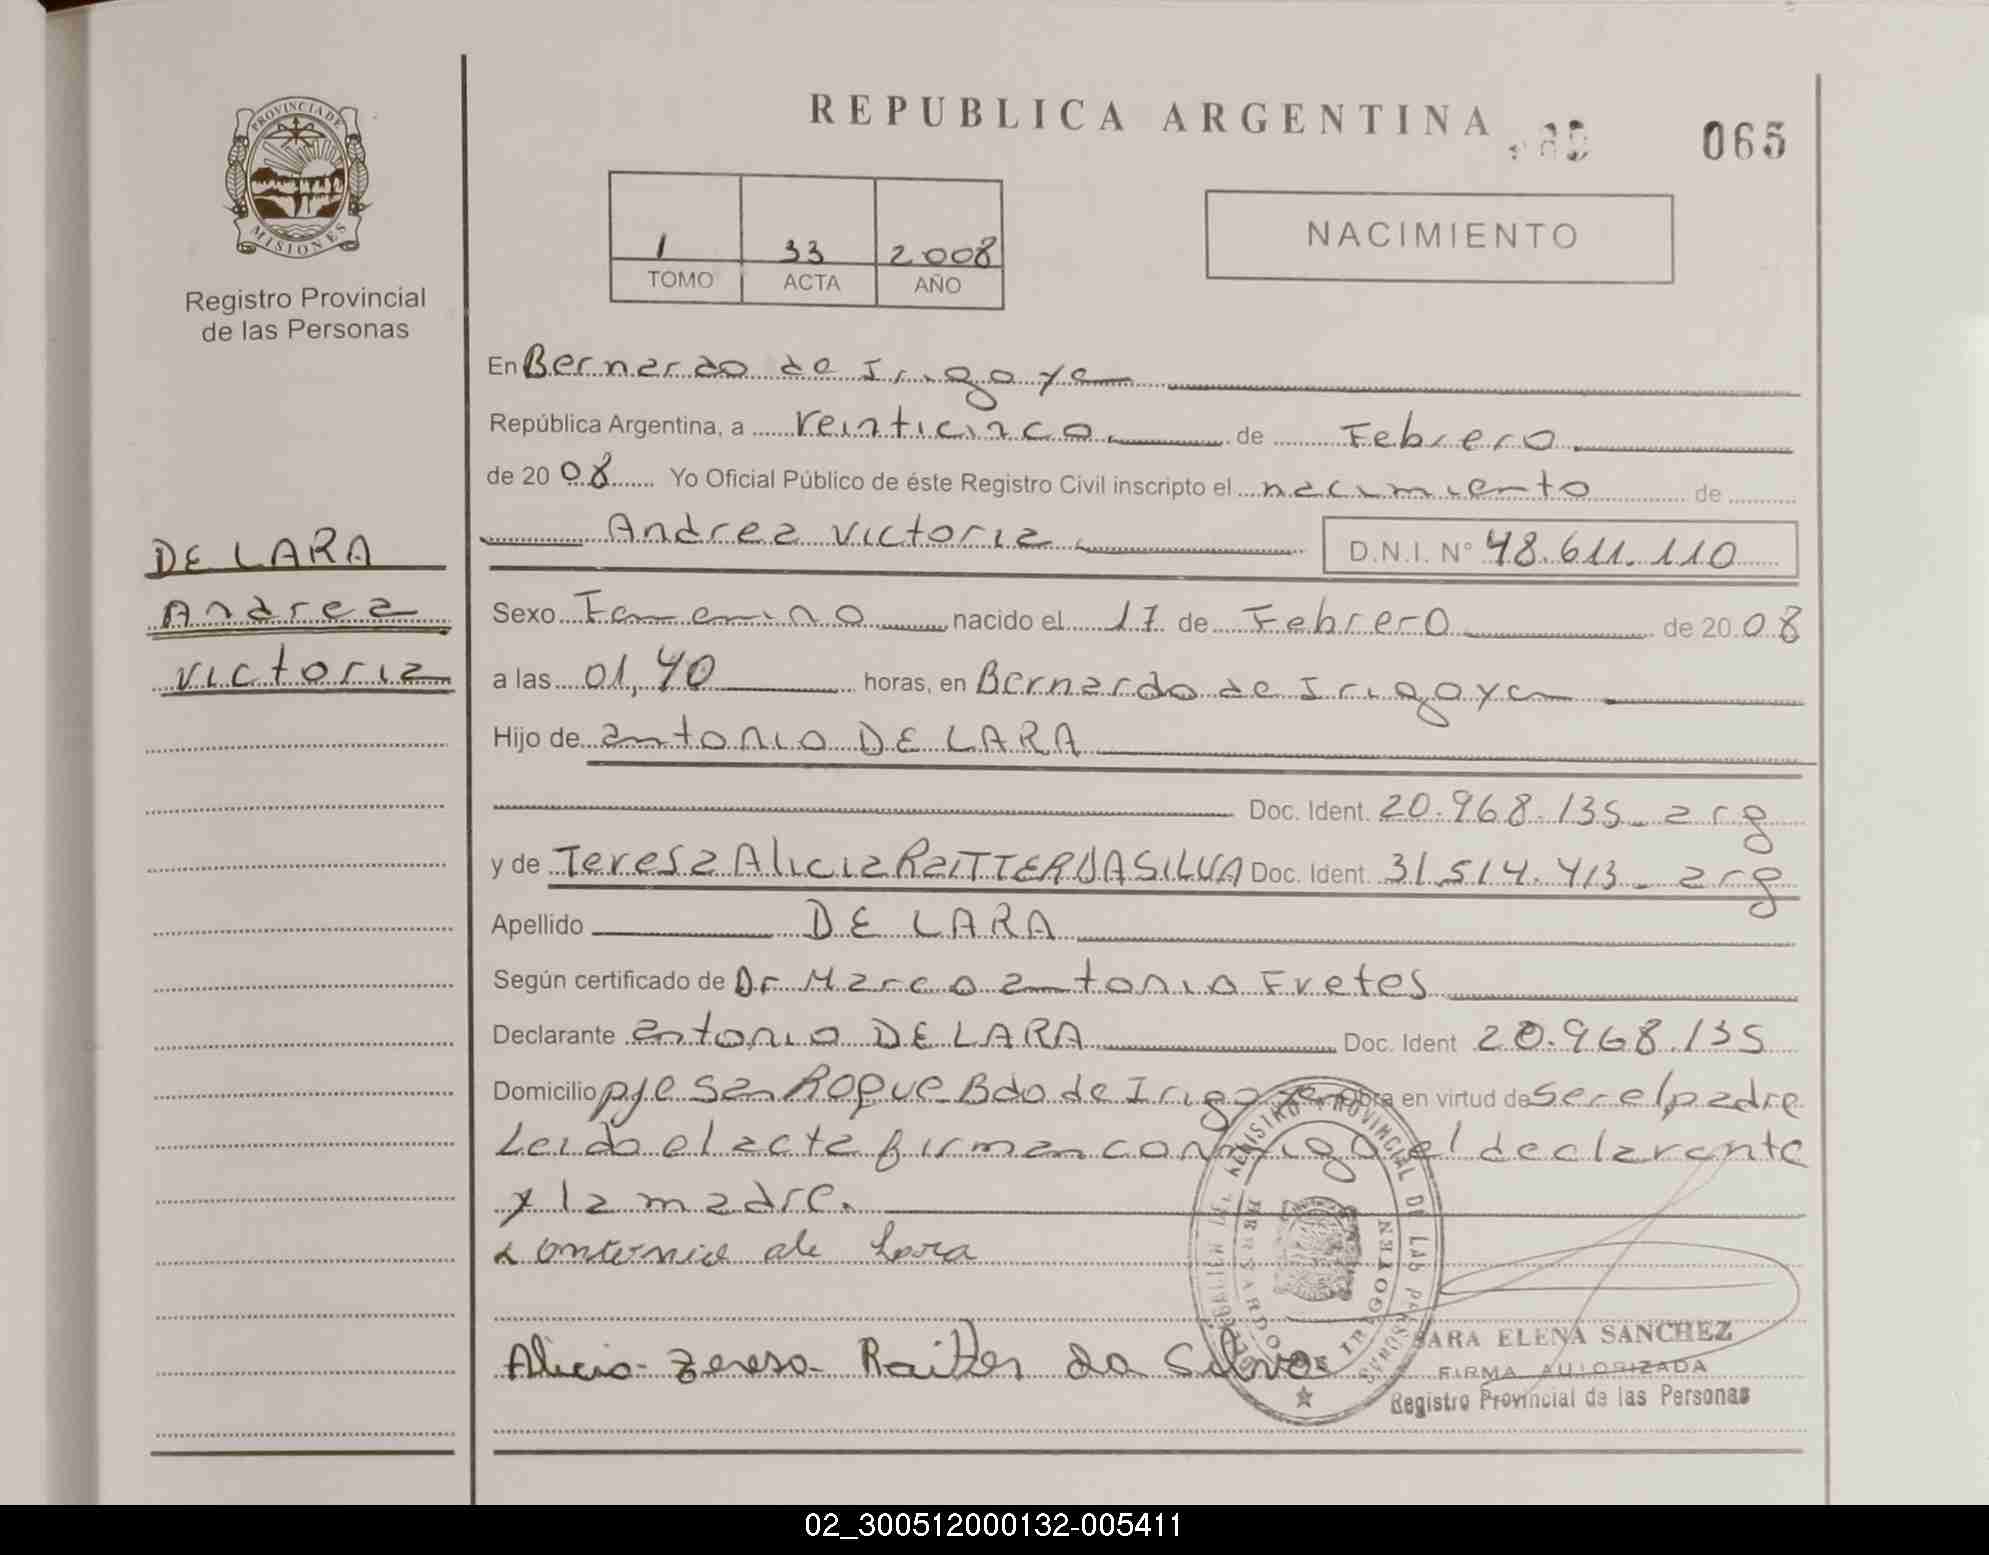 REPUBLICA ARGENTINA
065
PROVINCIA DE
MISIONES
Registro Provincial
de las Personas
1 33 2008
TOMO ACTA AÑO
NACIMIENTO
En Bernardo de Irigoyen
República Argentina, a veinticinco de Febrero
de 2008 Yo Oficial Público de éste Registro Civil inscripto el nacimiento de
Andrea Victoria D.N.I. Nº 48.611.110
DE LARA
Andrea
Victoria
Sexo Femenino nacido el 17 de Febrero de 2008
a las 01,40 horas, en Bernardo de Irigoyen
Hijo de Antonio DE LARA
Doc. Ident. 20.968.135_ arg
y de Teresa Alicia RaITTER DA SILVA Doc. Ident. 31.514.413_ arg
Apellido DE LARA
Según certificado de Dr Marco Antonio Fretes
Declarante Antonio DE LARA Doc. Ident 20.968.135
Domicilio pje San Roque Bdo de Irigoyen Obra en virtud de ser el padre
Leido el acta firman conmigo el declarante
y la madre.
de Lara
Alicia Teresa Raitter da Silva
REGISTRO PROVINCIAL DE LAS PERSONAS
BERNARDO DE IRIGOYEN
SARA ELENA SANCHEZ
FIRMA AUTORIZADA
Registro Provincial de las Personas
02_300512000132-005411